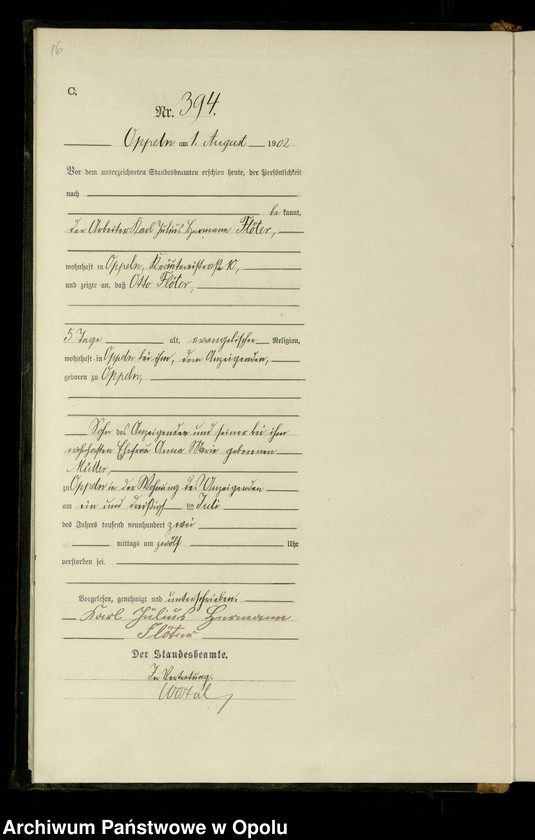 16
C.
Nr. 394.
Oppeln am 1. August 1902
Vor dem unterzeichneten Standesbeamten erschien heute, der Persönlichkeit
nach
be kannt,
der Arbeiter Karl Julius Hermann Flöter,
wohnhaft in Oppeln, Kräutereistrasse 10,
und zeigte an, daß Otto Flöter,
5 Tage alt, evangelischer Religion,
wohnhaft in Oppeln bei ihm, dem Anzeigenden,
geboren zu Oppeln,
Sohn des Anzeigenden und seiner bei ihm
wohnhaften Ehefrau Anna Marie geborenen
Müller,
zu Oppeln in der Wohnung des Anzeigenden
am ein und dreißigst en Juli
des Jahres tausend neunhundert zwei
mittags um zwölf Uhr
verstorben sei.
Vorgelesen, genehmigt und unterschrieben.
Karl Julius Hermann
Flöter
Der Standesbeamte.
In Vertretung.
Archiwum Państwowe w Opolu